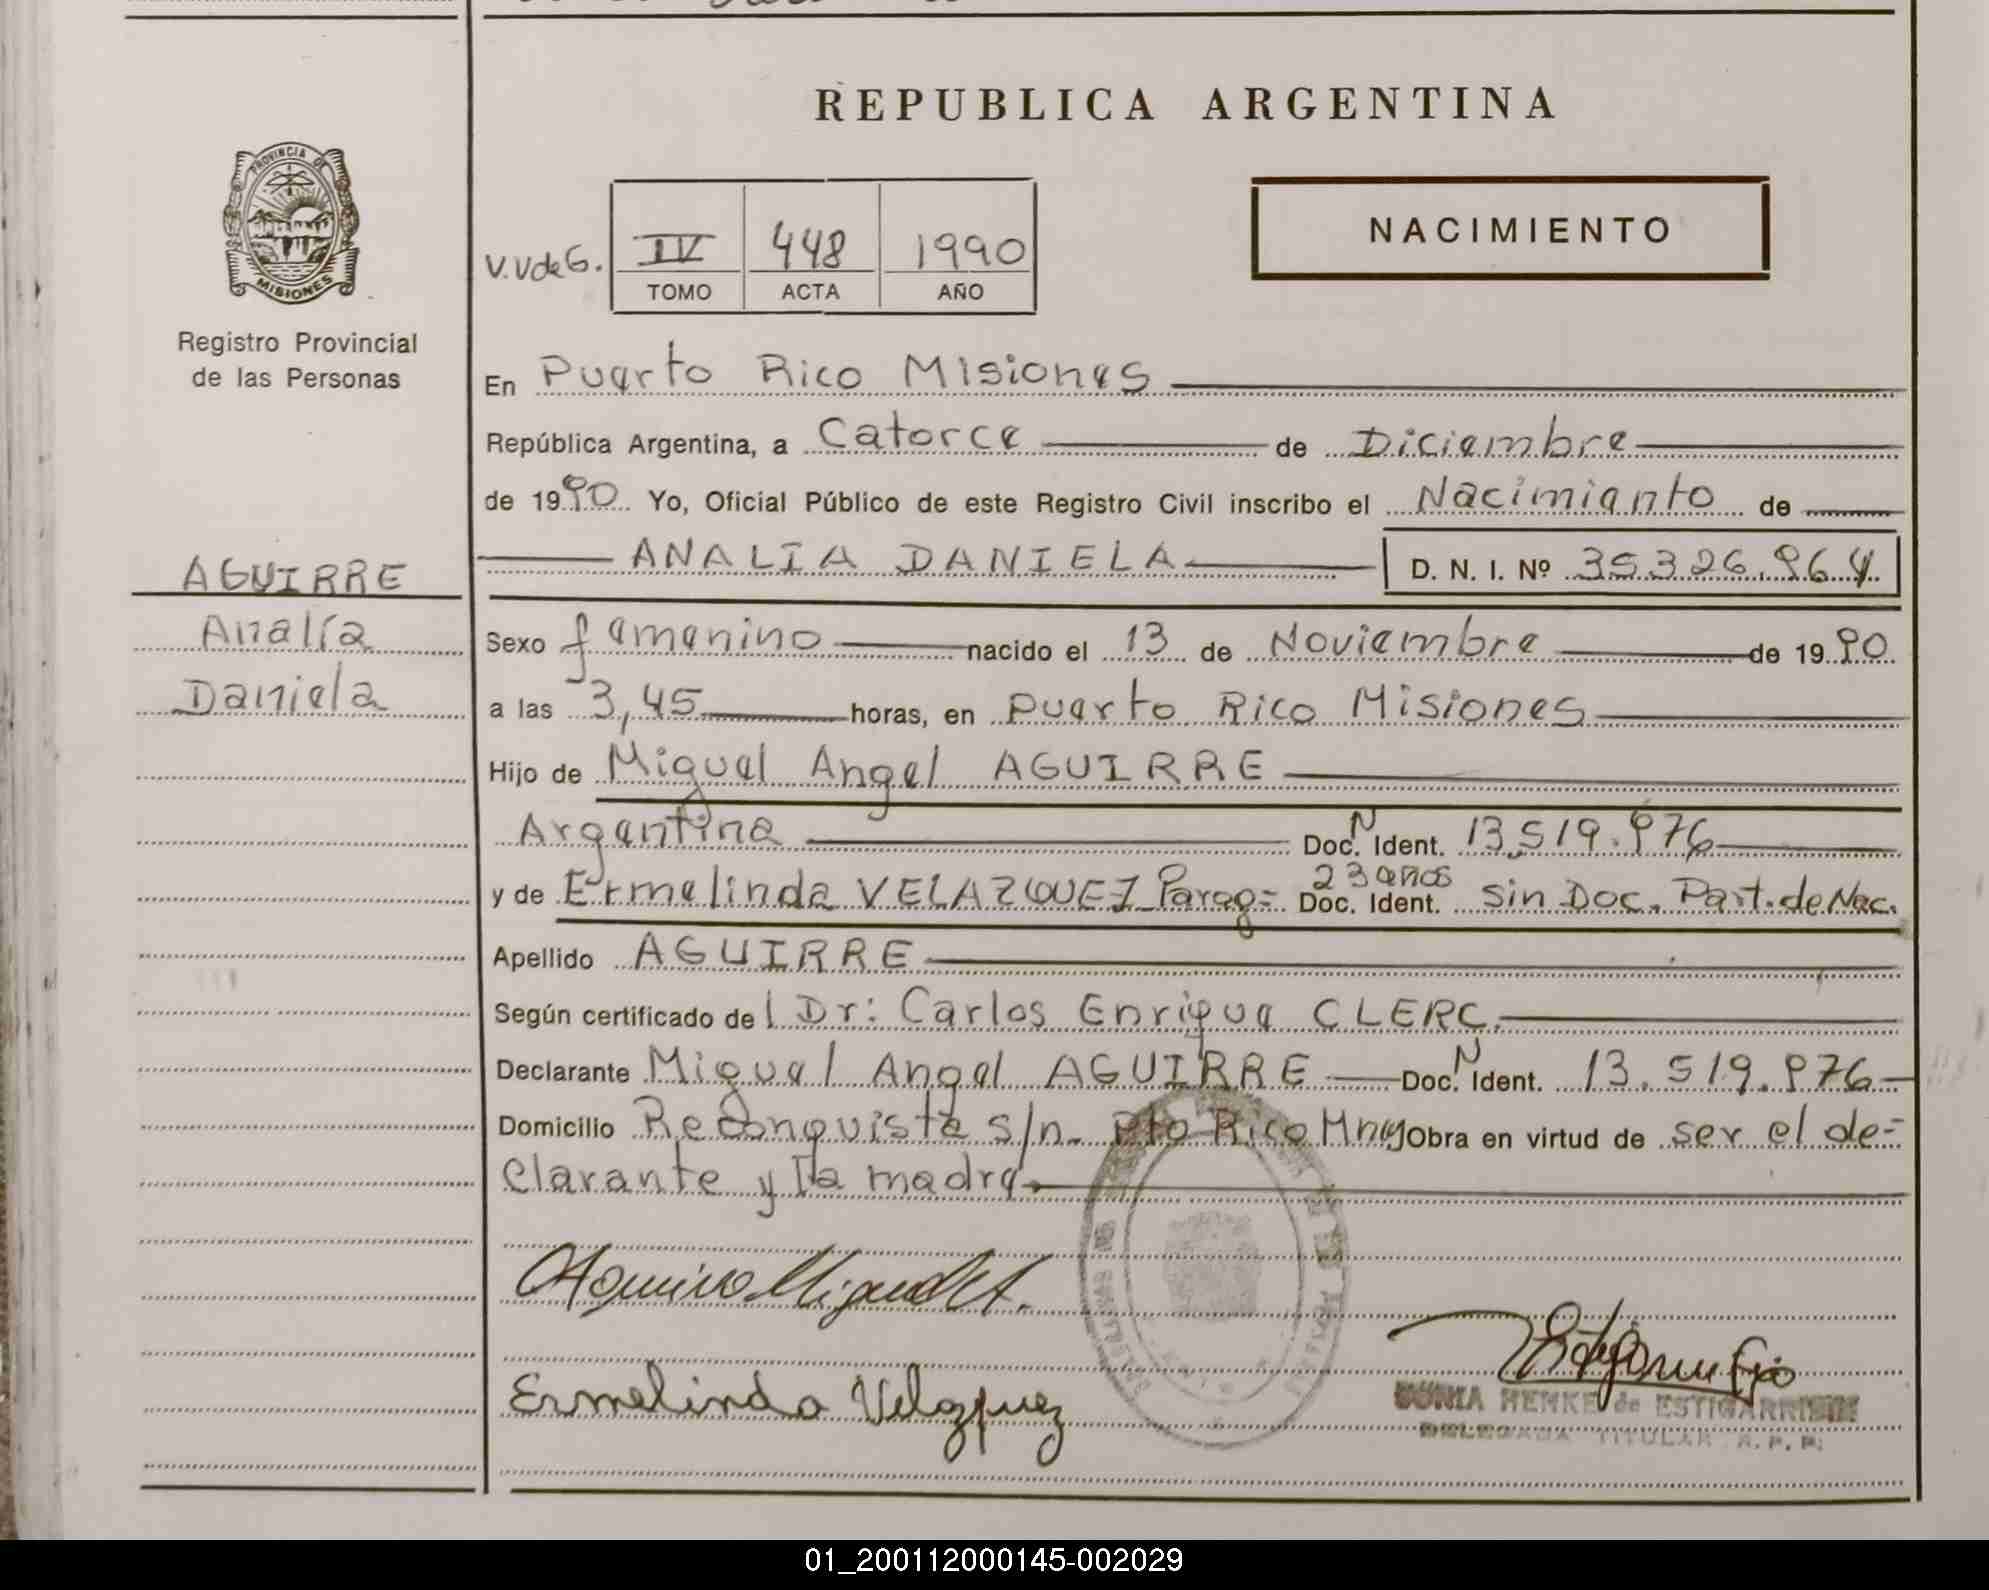 REPUBLICA ARGENTINA
PROVINCIA DE
MISIONES
Registro Provincial
de las Personas
V.V de G.
IV 448 1990
TOMO ACTA AÑO
NACIMIENTO
En Puerto Rico Misiones
República Argentina, a Catorce de Diciembre
de 1990 Yo, Oficial Público de este Registro Civil inscribo el Nacimiento de
AGUIRRE
Analía
Daniela
ANALIA DANIELA D. N. I. Nº 35.326.964
Sexo femenino nacido el 13 de Noviembre de 1990
a las 3,45 horas, en Puerto Rico Misiones
Hijo de Miguel Angel AGUIRRE
Argentina Doc. N Ident. 13.519.976
y de Ermelinda VELAZQUEZ Parag= 23 años Doc. Ident. sin Doc. Part. de Nac.
Apellido AGUIRRE
Según certificado de l Dr: Carlos Enrique CLERC.
Declarante Miguel Angel AGUIRRE Doc. N Ident. 13.519.976
Domicilio Reconquista s/n. Pto Rico Mnes Obra en virtud de ser el de=
clarante y la madre
Ermelinda Velazquez
HENKE de ESTIGARRIBIA
DELEGADA TITULAR R. P. P.
01_200112000145-002029